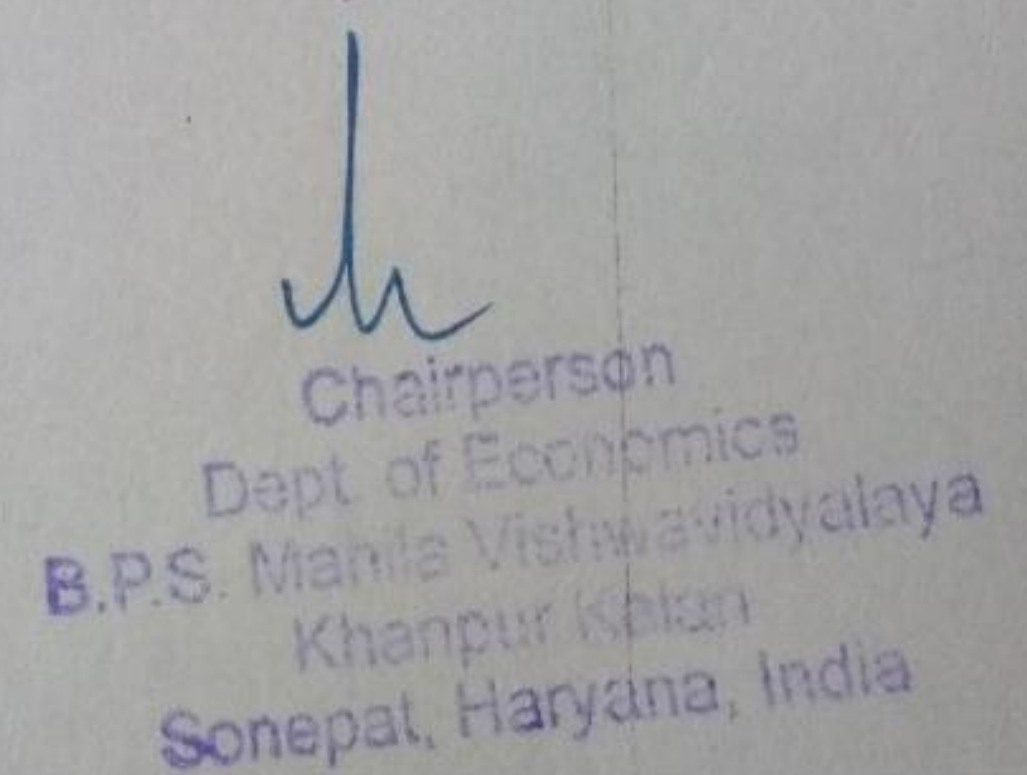 Chairperson
Dept. of Economics
B.P.S. Mahila Vishwavidyalaya
Khanpur Kalan
Sonepat, Haryana, India